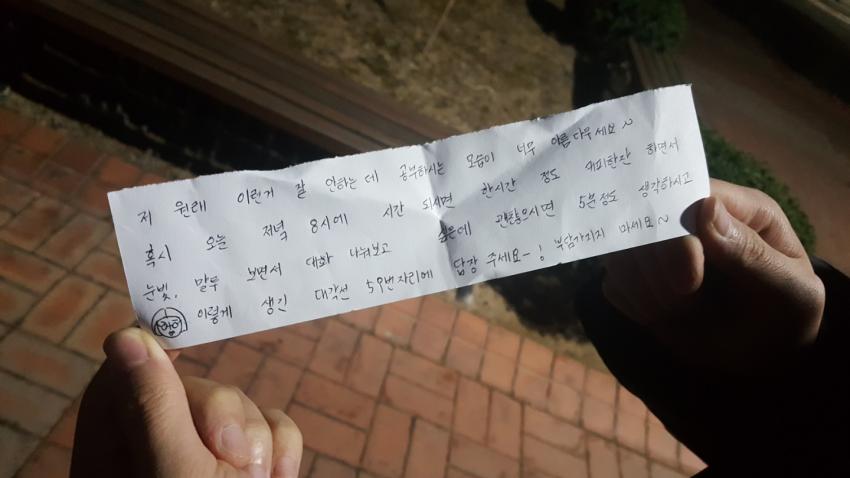 저 원래 이런거 잘 안하는데 공부하시는 모습이 너무 아름다우세요~
혹시 오늘 저녁 8시에 시간 되시면 한시간 정도 커피한잔 하면서
눈빛, 말투 보면서 대화 나눠보고 싶은데 괜찮으시면 5분정도 생각하시고
이렇게 생긴 대각선 59번자리에 답장 주세요-! 부담가지지 마세요~